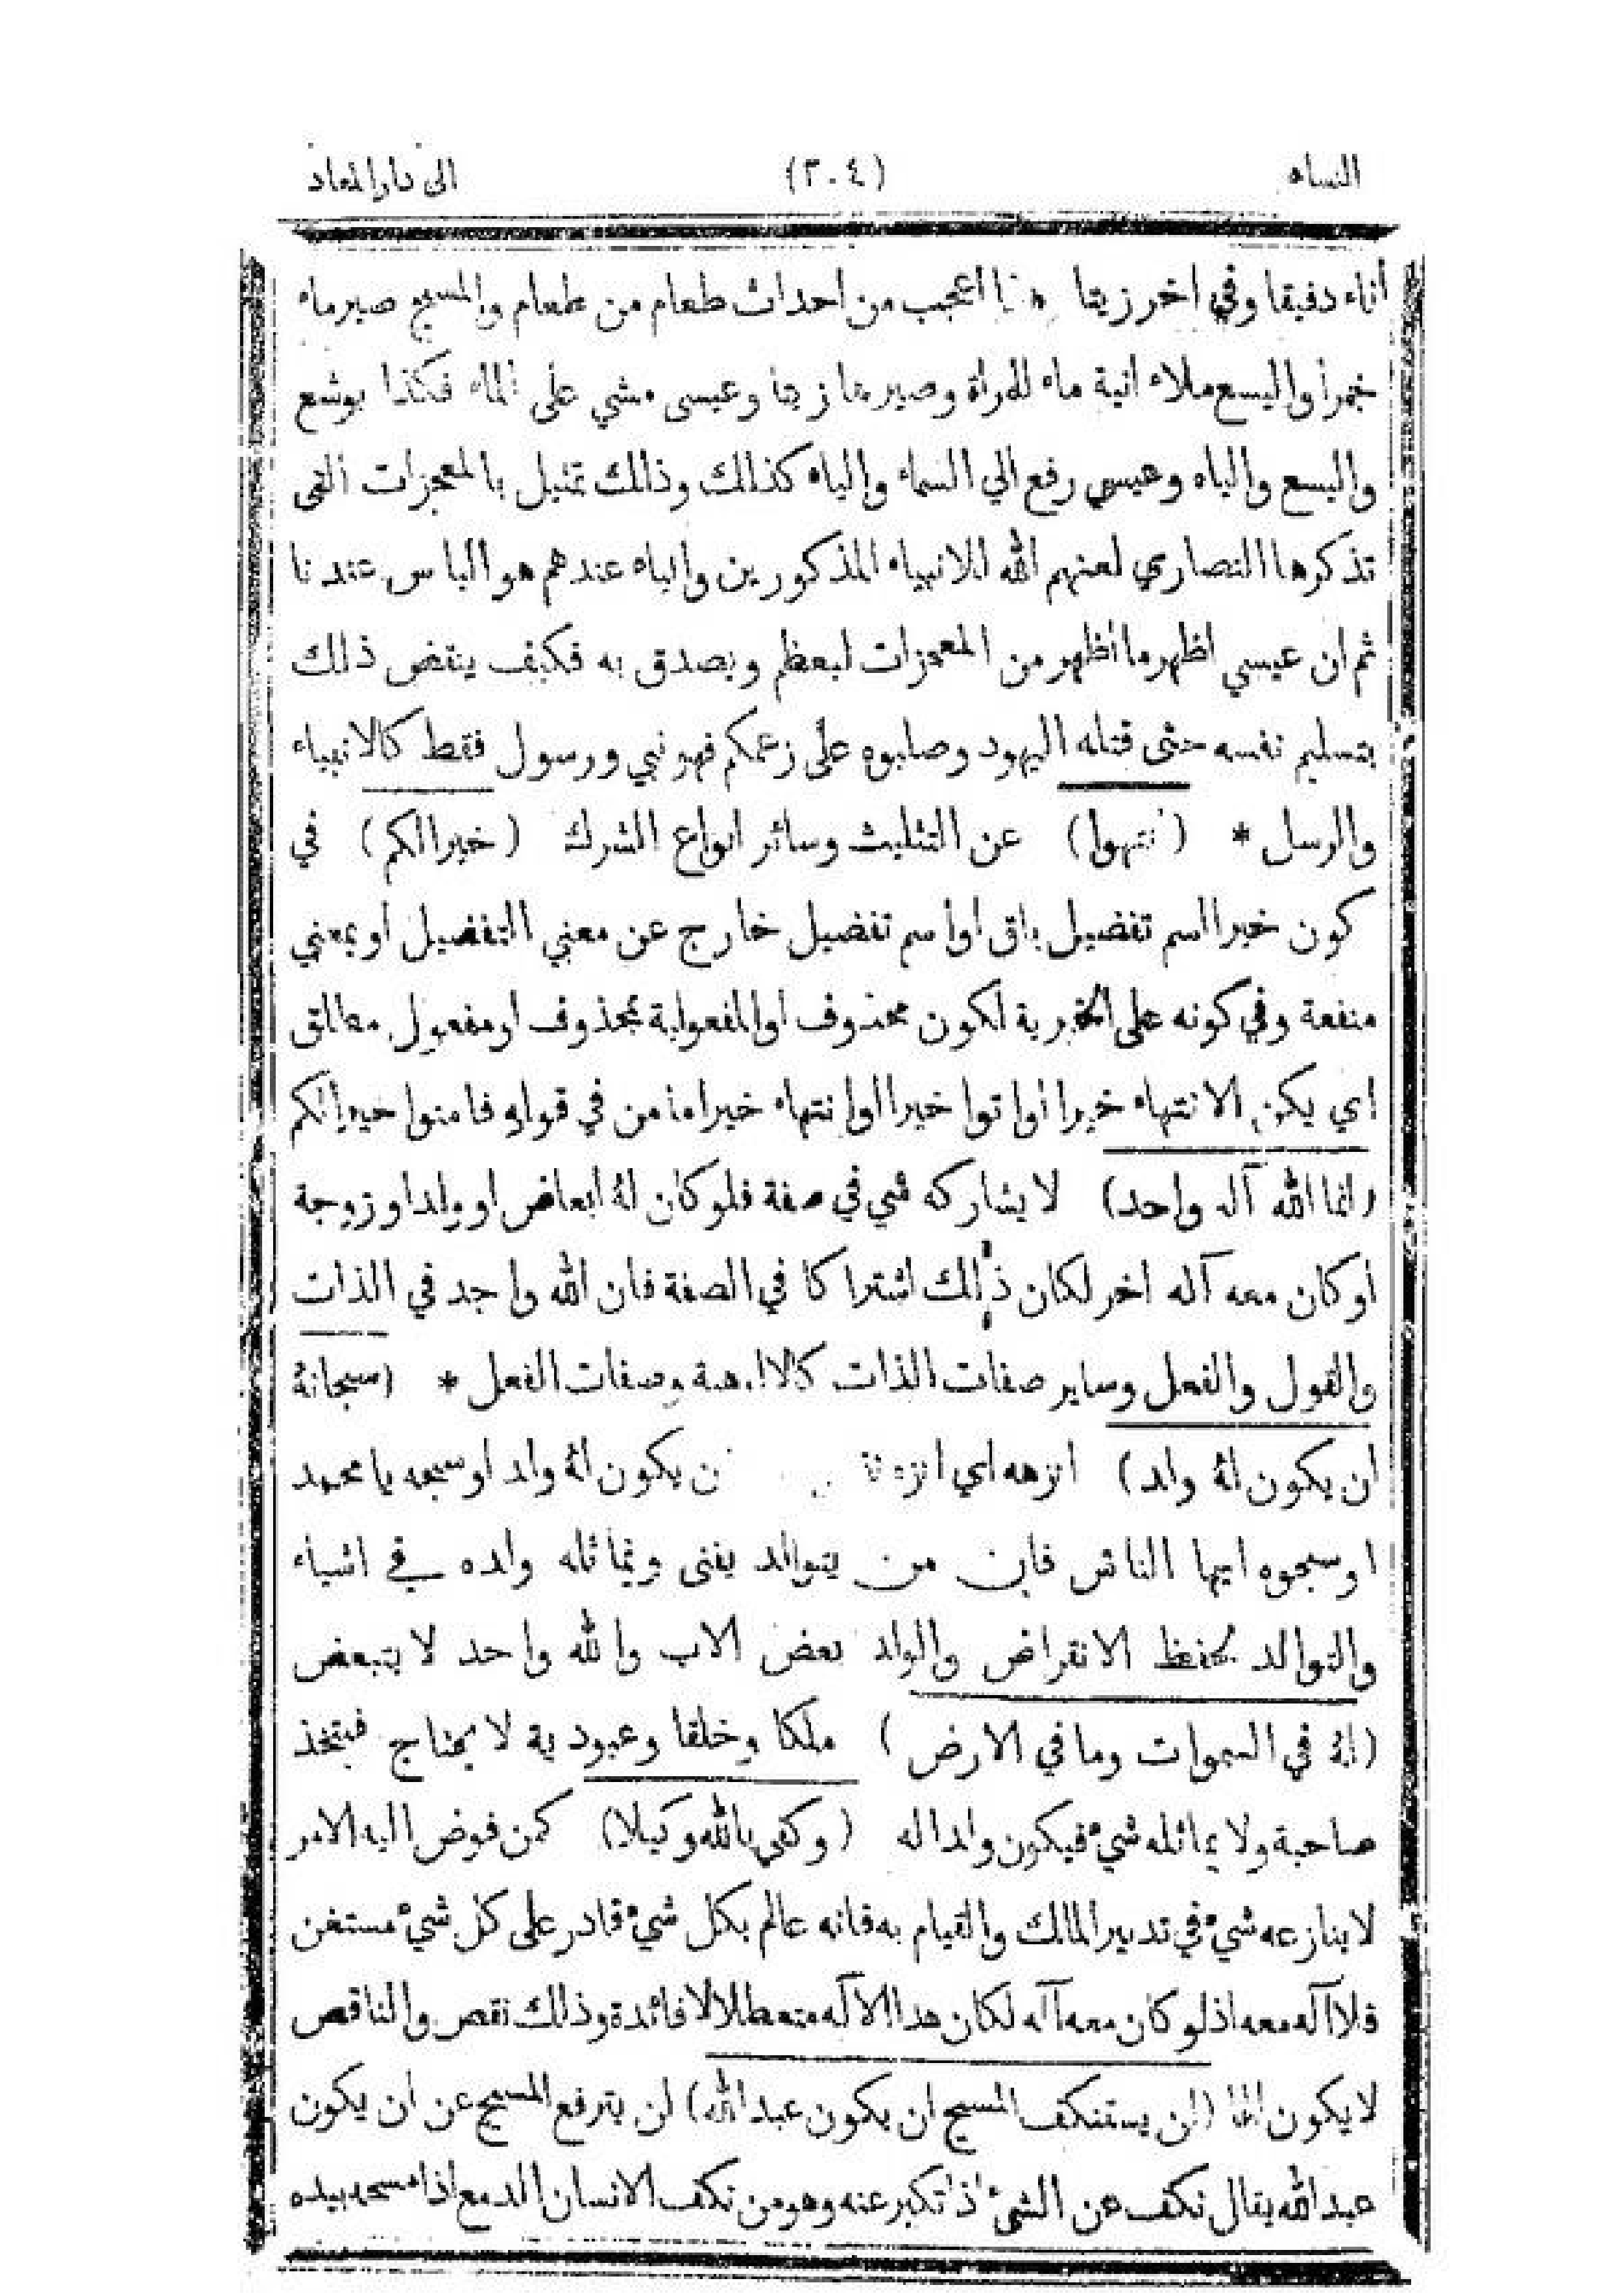 النساء (٣٠٤) الى دار المعاد
أناء دقيقا وفي اخر زيتا اعجب من احداث طعام من طعام والمسيح صير ماء
خمرا واليسع ملاء انية ماء للمراة وصيرها زيتا وعيسى مشي على الماء فكذا يوشع
واليسع والياه وعيسى رفع الي السماء والياه كذلك وذلك تمثيل بالمعجزات التى
تذكرها النصاري لعنهم الله للانبياء المذكورين والياه عندهم هو الياس عندنا
ثم ان عيسي اظهر ما اظهر من المعجزات ليعظم ويصدق به فكيف ينقض ذلك
بتسليم نفسه حتى قتله اليهود وصلبوه على زعمكم فهو نبي ورسول فقط كالانبياء
والرسل * (انتهوا) عن التثليث وسائر انواع الشرك (خيرا لكم) في
كون خيرا اسم تفضيل باق او اسم تفضيل خارج عن معني التفضيل او بمعني
منفعة وفي كونه على الخبرية لكون محذوف او المفعولية بمحذوف او مفعول مطلق
اي يكن الانتهاء خيرا او اتوا خيرا او انتهاء خيرا ما من في قوله فامنوا خيرا لكم
(انما الله آله واحد) لا يشاركه شي في صفة فلو كان له ابعاض او ولد او زوجة
أو كان معه آله اخر لكان ذلك اشتراكا في الصفة فان الله واحد في الذات
والقول والفعل وساير صفات الذات كالالوهة وصفات الفعل * (سبحانه
ان يكون له ولد) انزهه اي انزه ن يكون له ولد او سبحه يا محمد
او سبحوه ايها الناس فان من يتوالد يفنى ويماثله ولده في اشياء
والتوالد لحفظ الانقراض والولد بعض الاب والله واحد لا يتبعض
(له في السموات وما في الارض) ملكا وخلقا وعبودية لا يحتاج فيتخذ
صاحبة ولا يماثله شيء فيكون ولدا له (وكفى بالله وكيلا) كمن فوض اليه الامر
لا ينازعه شيء في تدبير الملك والقيام به فانه عالم بكل شيء قادر على كل شيء مستغن
فلا آله معه اذ لو كان معه آله لكان هذا الاله متعطلا لا فائدة وذلك نقص والناقص
لا يكون الها (لن يستنكف المسيح ان يكون عبدا لله) لن يترفع المسيح عن ان يكون
عبدا لله يقال نكف عن الشيء اذا تكبر عنه وهو من نكف الانسان الدمع اذا مسحه بيده